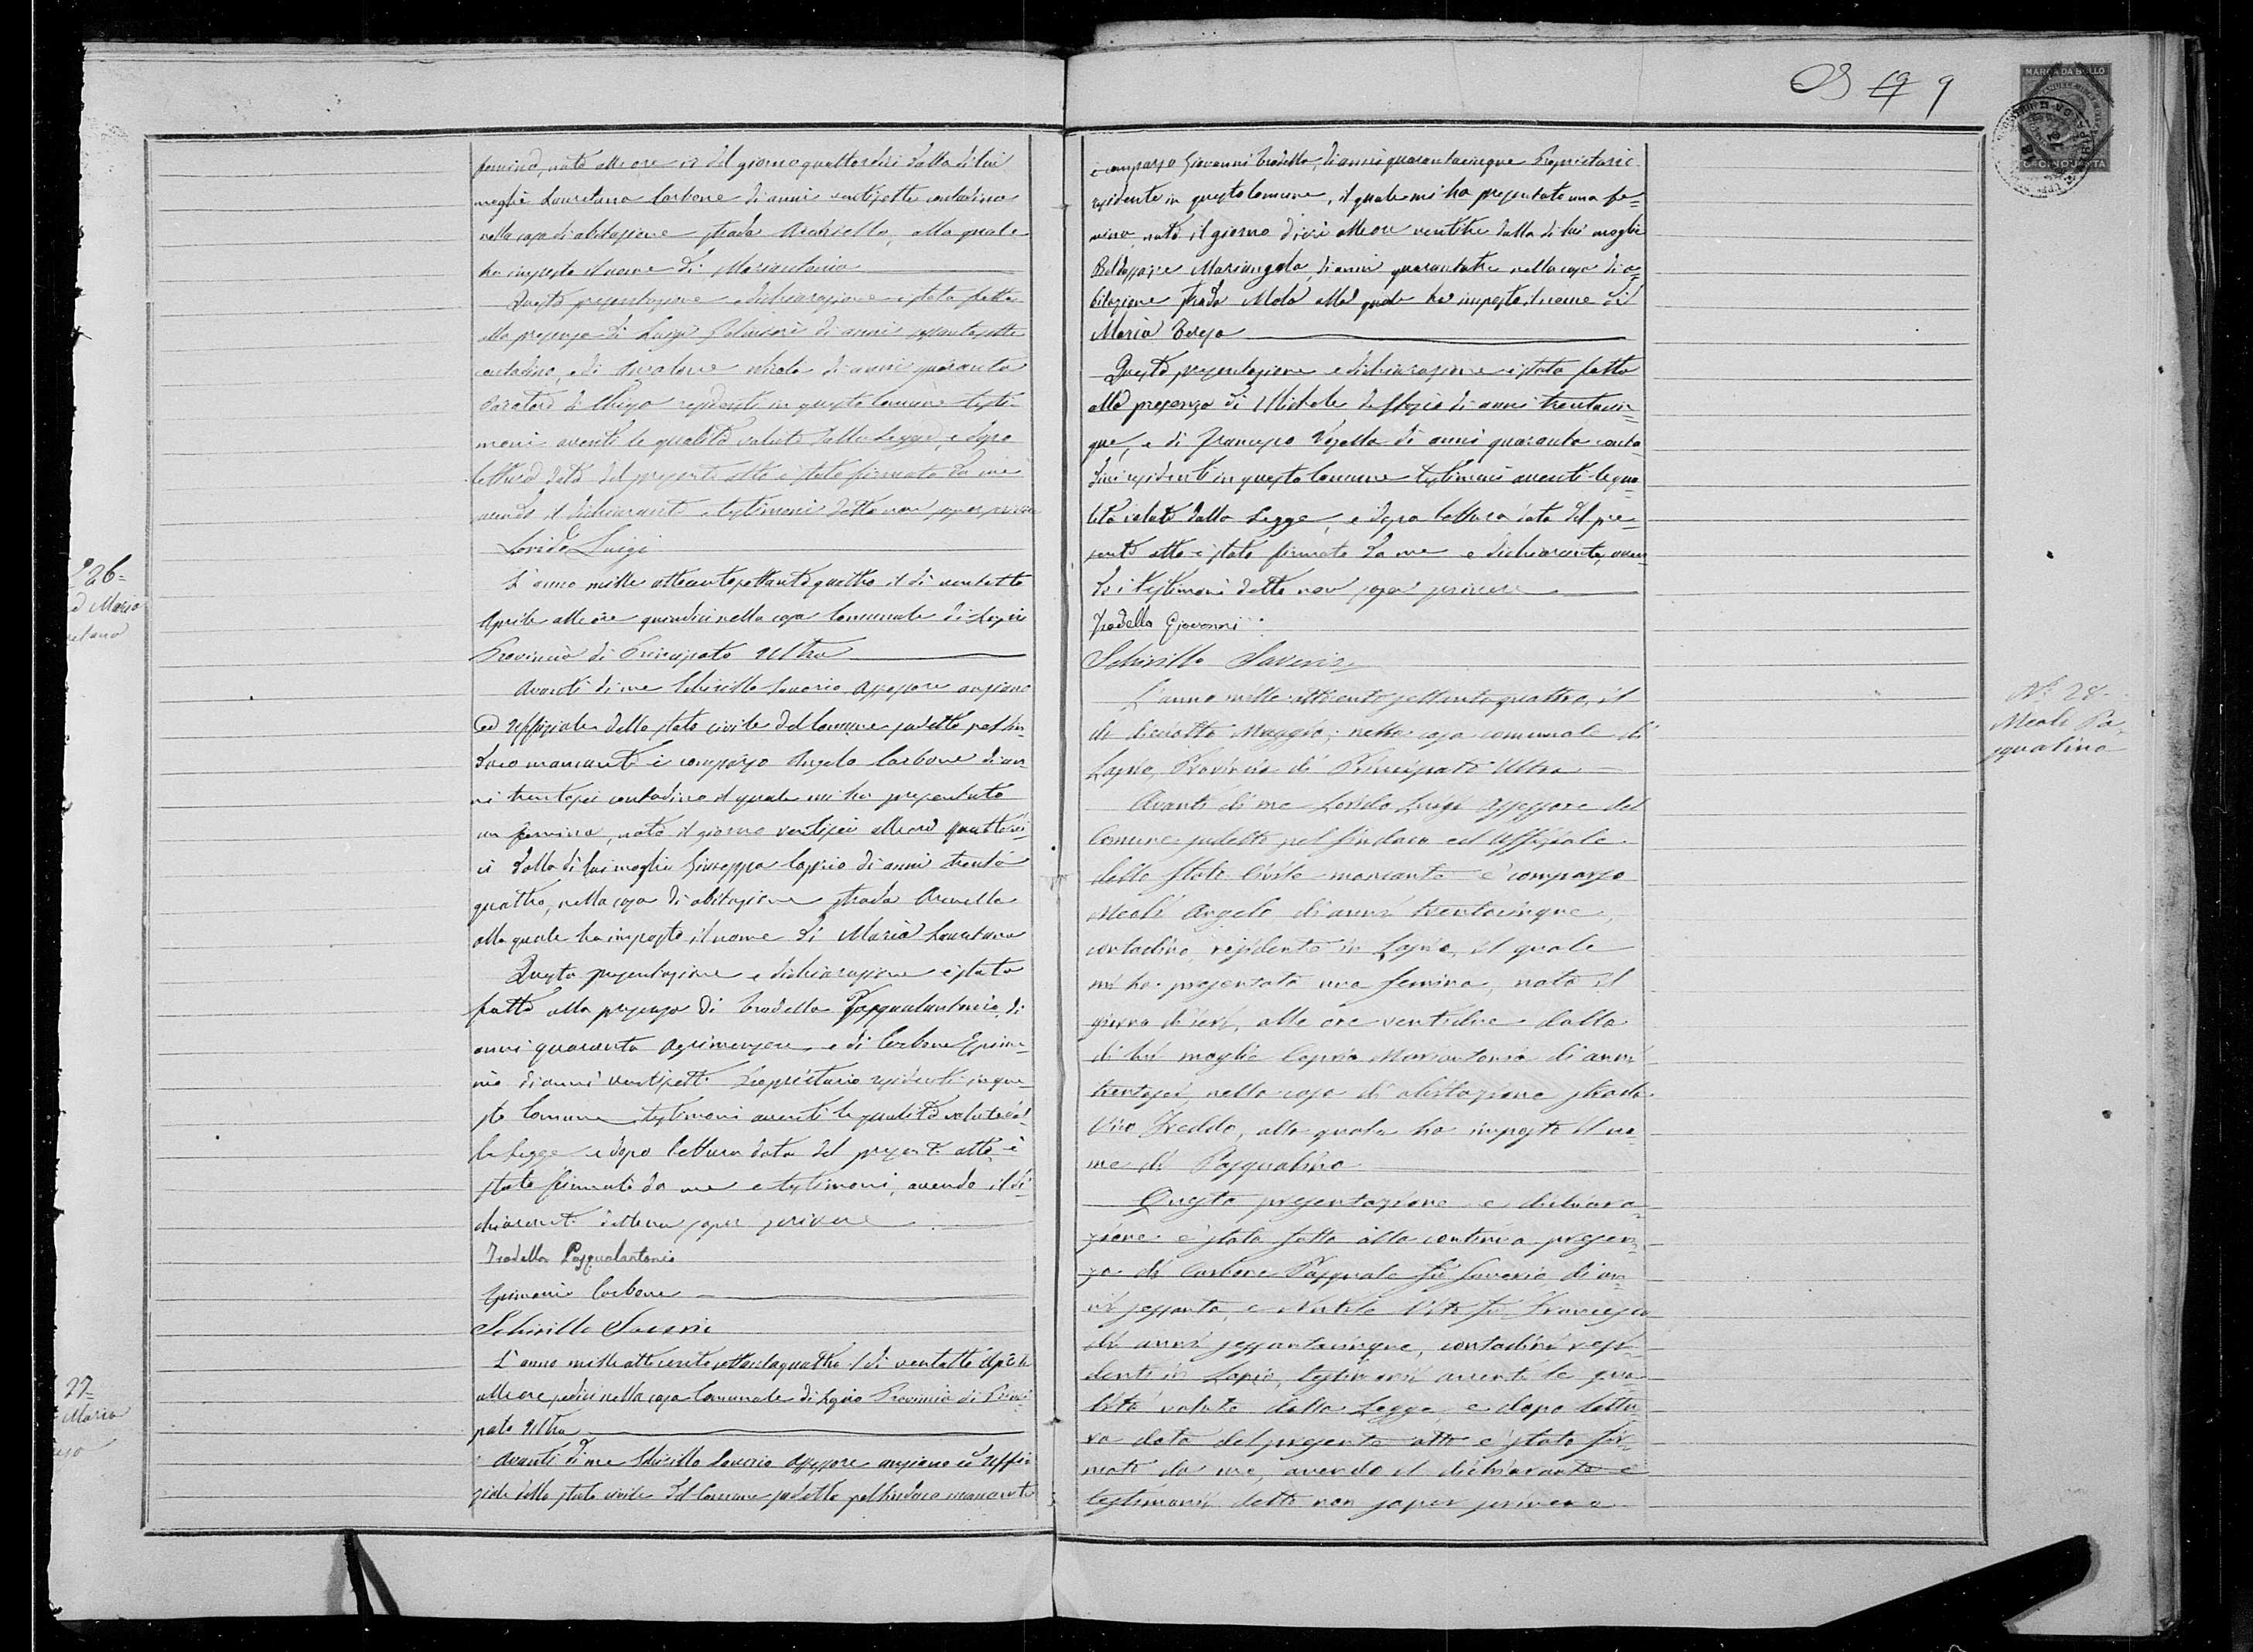 femina, nata alle ore 12 del giorno quattordici dalla di lui
moglie Lauretana Carbone di anni ventisette contadina
nella casa di abitazione strada Arariello, alla quale
ha imposto il nome di Mariantonia
Questa presentazione e dichiarazione è stata fatta
alla presenza di Luigi di anni sessantasette
contadino, e di Nicola di anni quaranta
residenti in questo Comune testi-
moni aventi le qualità volute dalla Legge, e dopo
lettura data del presente atto è stato firmato da me
avendo il dichiarante e testimoni detto non saper scrivere
Lorido Luigi
226=
Maria
retana
L'anno mille ottocentosettantaquattro il dì ventotto
Aprile alle ore quindici nella casa Comunale di Lapio
Provincia di Principato Ultra
Avanti di me Schirillo Saverio Assessore anziano
ed Uffiziale dello stato civile del Comune sudetto pel Sin-
daco mancante è comparso Angelo Carbone di an-
ni trentasei contadino il quale mi ha presentato
un femina, nata il giorno ventisei alle ore quattordi-
ci dalla di lui moglie Giuseppa Caprio di anni trenta
quattro, nella casa di abitazione strada Arenella
alla quale ha imposto il nome di Maria Lauretana
Questa presentazione e dichiarazione è stata
fatta alla presenza di Trodella Pasqualantonio di
anni quaranta Agrimensore, e di Carbone Epime-
nio di anni ventisette Proprietario residenti in que-
sto Comune testimoni aventi le qualità volute dal-
la Legge e dopo lettura data del presente atto è
stato firmato da me e testimoni, avendo il di-
chiarante detto non saper scrivere
Trodella Pasqualantonio
Epimenio Carbone
Schirillo Saverio
27=
Maria
L'anno mille ottocentosettantaquattro il dì ventotto Aprile
alle ore sedici nella casa Comunale di Lapio Provincia di Princi-
pato Ultra
Avanti di me Schirillo Saverio Assessore anziano ed Uffi-
ziale dello stato civile del Comune sudetto pel Sindaco mancante
9
MARCA DA BOLLO
CINQUANTA
è comparso Giovanni Trodella, di anni quarantacinque Proprietario
residente in questo Comune, il quale mi ha presentato una fe-
mina, nata il giorno dieci alle ore ventitre dalla di lui moglie
Baldassarre Mariangela, di anni quarantatre nella casa di a-
bitazione strada Mola alla quale ha imposto il nome di
Maria Teresa
Questa presentazione e dichiarazione è stata fatta
alla presenza di Michele di anni trentacin-
que, e di Francesco Vozella di anni quaranta conta-
dini residenti in questo Comune testimoni aventi le qua-
lità volute dalla Legge, e dopo lettura data del pre-
sente atto è stato firmato da me e dichiarante, aven-
do i testimoni detto non saper scrivere
Trodella Giovanni
Schirillo Saverio
No. 28-
Meoli Pa-
squalina
L'anno mille ottocentosettantaquattro, il
dì diciotto Maggio, nella casa comunale di
Lapio, Provincia di Principato Ultra
Avanti di me Lorido Luigi Assessore del
Comune sudetto pel Sindaco ed Uffiziale
dello Stato Civile mancante è comparso
Meoli Angelo di anni trentacinque,
contadino, residente in Lapio, il quale
mi ha presentato una femina, nata il
giorno di ieri, alle ore ventidue dalla
di lui moglie Caprio Mariantonia di anni
trentasei, nella casa di abitazione strada
Vico Freddo, alla quale ha imposto il no-
me di Pasqualina
Questa presentazione e dichiara-
zione è stata fatta alla continua presen-
za di Carbone Pasquale fu Saverio, di an-
ni sessanta, e Natale Vito fu Francesco
di anni sessantacinque, contadini resi-
denti in Lapio, testimoni aventi le qua-
lità volute dalla Legge, e dopo lettu-
ra data del presente atto è stato fir-
mato da me, avendo il dichiarante e
testimoni detto non saper scrivere